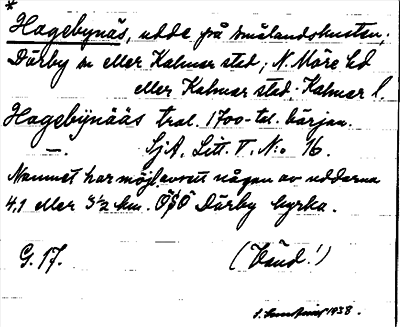 *
Hagebynäs, udde på Smålandskusten;
Dörby sn eller Kalmar stad; N. Möre hd
eller Kalmar stad; Kalmar l.
Hagebÿnääs trol. 1700-tal. början.
—.— SjA. Litt. T. N:o 16.
Namnet har möjl. avsett någon av uddarna
4,1 eller 3½ km. ÖSÖ Dörby kyrka.
G. 17. (Vänd!)
1938.